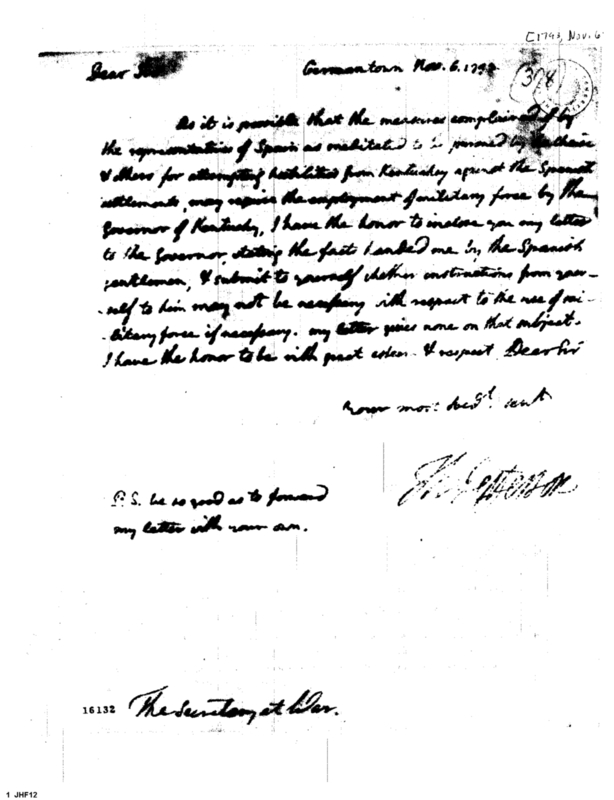 [1793, Nov. 6
308
Dear Sir Germantown Nov. 6. 1793
As it is possible that the measures complained of by
the representatives of Spain as meditated to be pursued by
& others for attempting hostilities from Kentuckey against the Spanish
settlements, may require the employment of military force by the
Governor of Kentucky, I have the honor to inclose you my letter
to the Governor, stating the facts handed me by the Spanish
gentlemen, & submit to yourself whether instructions from your-
-self to him may not be necessary with respect to the use of mi-
-litary force if necessary. my letter gives none on that subject.
I have the honor to be with great esteem & respect Dear Sir
Your most obedt. servt
Th: Jefferson
P.S. be so good as to forward
my letter with your own.
16132 The Secretary at War.
1 JHF12